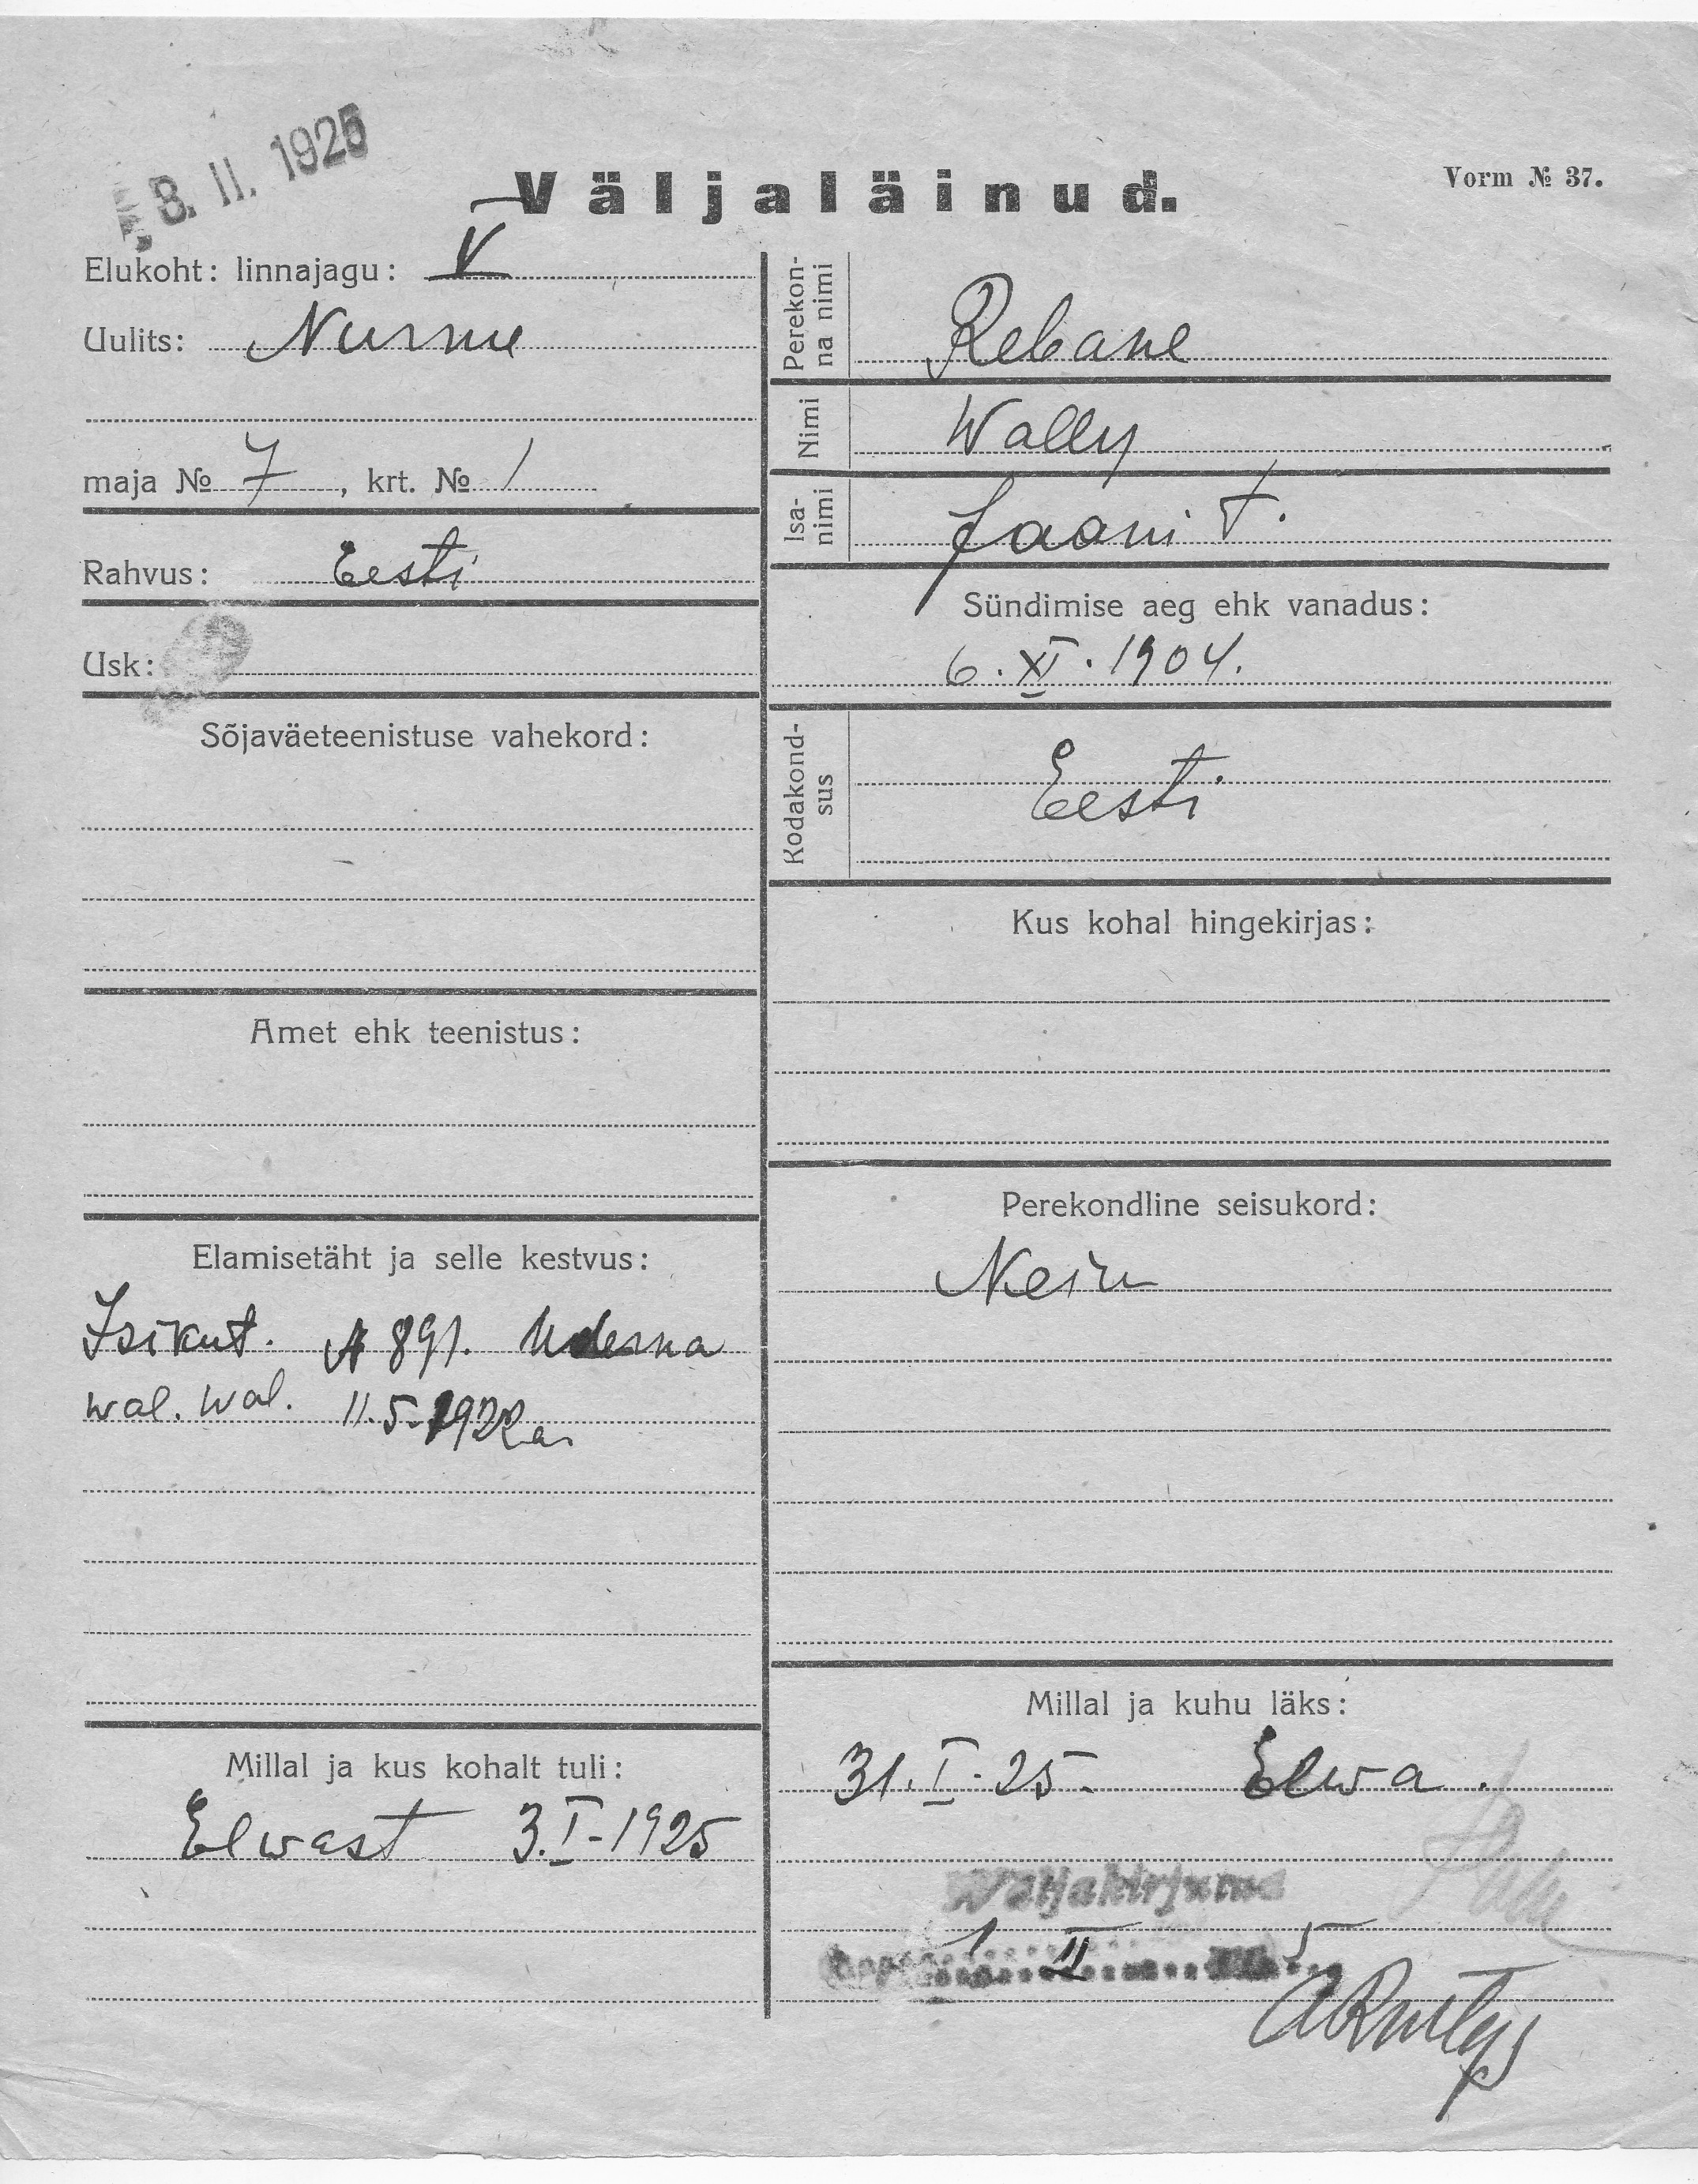 8. II. 1925
Väljaläinud.
Vorm № 37.
Elukoht: linnajagu: V
Uulits: Nurme
maja № 7, krt. № 1
Rahvus: Eesti
Usk:
Sõjaväeteenistuse vahekord:
Amet ehk teenistus:
Elamisetäht ja selle kestvus:
Isikut. A 891. Uderna
wal. wal. 11.5.1922 a.
Millal ja kus kohalt tuli:
Elwast 3.I-1925
Perekon-
na nimi
Rebane
Nimi
Wally
Isa-
nimi
Jaani t.
Sündimise aeg ehk vanadus:
6. XI. 1904.
Kodakond-
sus
Eesti
Kus kohal hingekirjas:
Perekondline seisukord:
Neiu
Millal ja kuhu läks:
31. I. 25. Elwa.
Wäljakirjutud
1 II 5